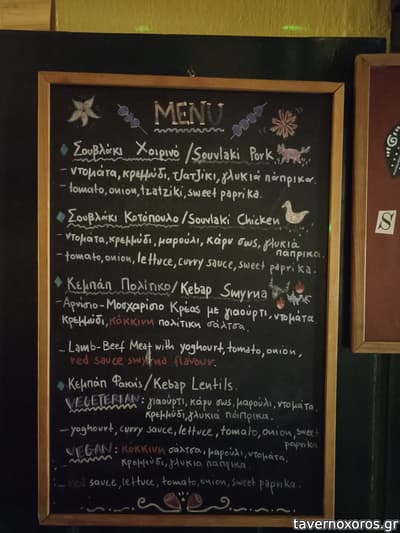 MENU
Σουβλάκι Χοιρινό / Souvlaki Pork
- ντομάτα, κρεμμύδι, τζατζίκι, γλυκιά πάπρικα.
- tomato, onion, tzatziki, sweet paprika.
Σουβλάκι Κοτόπουλο / Souvlaki Chicken
- ντομάτα, κρεμμύδι, μαρούλι, κάρυ σως, γλυκιά
πάπρικα.
- tomato, onion, lettuce, curry sauce, sweet paprika.
Κεμπάπ Πολίτικο / Kebap Smyrna
- Αρνίσιο - Μοσχαρίσιο Κρέας με γιαούρτι, ντομάτα
κρεμμύδι, κόκκινη πολίτικη σάλτσα.
- Lamb-Beef Meat with yoghourt, tomato, onion,
red sauce smyrna flavour.
Κεμπάπ Φακές / Kebap Lentils.
VEGETERIAN: γιαούρτι, κάρυ σως, μαρούλι, ντομάτα,
κρεμμύδι, γλυκιά πάπρικα.
- yoghourt, curry sauce, lettuce, tomato, onion, sweet
paprika
VEGAN: κόκκινη σάλτσα, μαρούλι, ντομάτα,
κρεμμύδι, γλυκια πάπρικα
- red sauce, lettuce, tomato, onion, sweet paprika.
S
tavernoxoros.gr